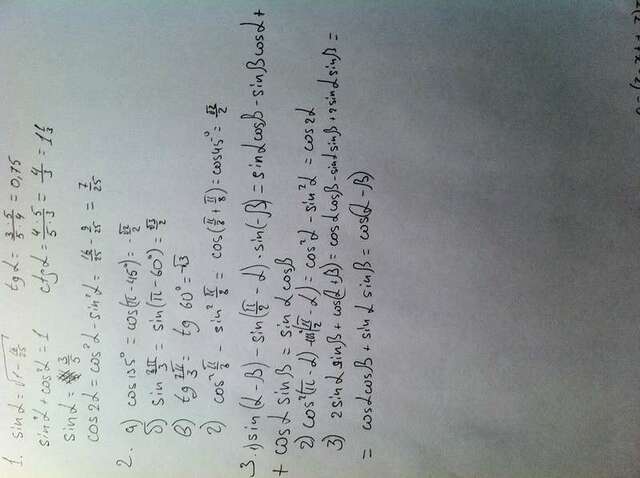 1. sin α = √1 - 16/25 tg α = 3·5/5·4 = 0,75
sin²α + cos²α = 1 ctg α = 4·5/5·3 = 4/3 = 1 1/3
sin α = 3/5
cos 2α = cos²α - sin²α = 16/25 - 9/25 = 7/25
2. а) cos 135° = cos(π - 45°) = -√2/2
б) sin 2π/3 = sin(π - 60°) = √3/2
в) tg 2π/3 = tg 60° = -√3
г) cos² π/8 - sin² π/8 = cos(π/8 + π/8) = cos 45° = √2/2
3. 1) sin(α - β) - sin(π/2 - α) · sin(-β) = sin α cos β - sin β cos α +
+ cos α sin β = sin α cos β
2) cos²(π - α) - cos²(π/2 - α) = cos²α - sin²α = cos 2α
3) 2 sin α sin β + cos(α + β) = cos α cos β - sin α sin β + 2 sin α sin β =
= cos α cos β + sin α sin β = cos(α - β)